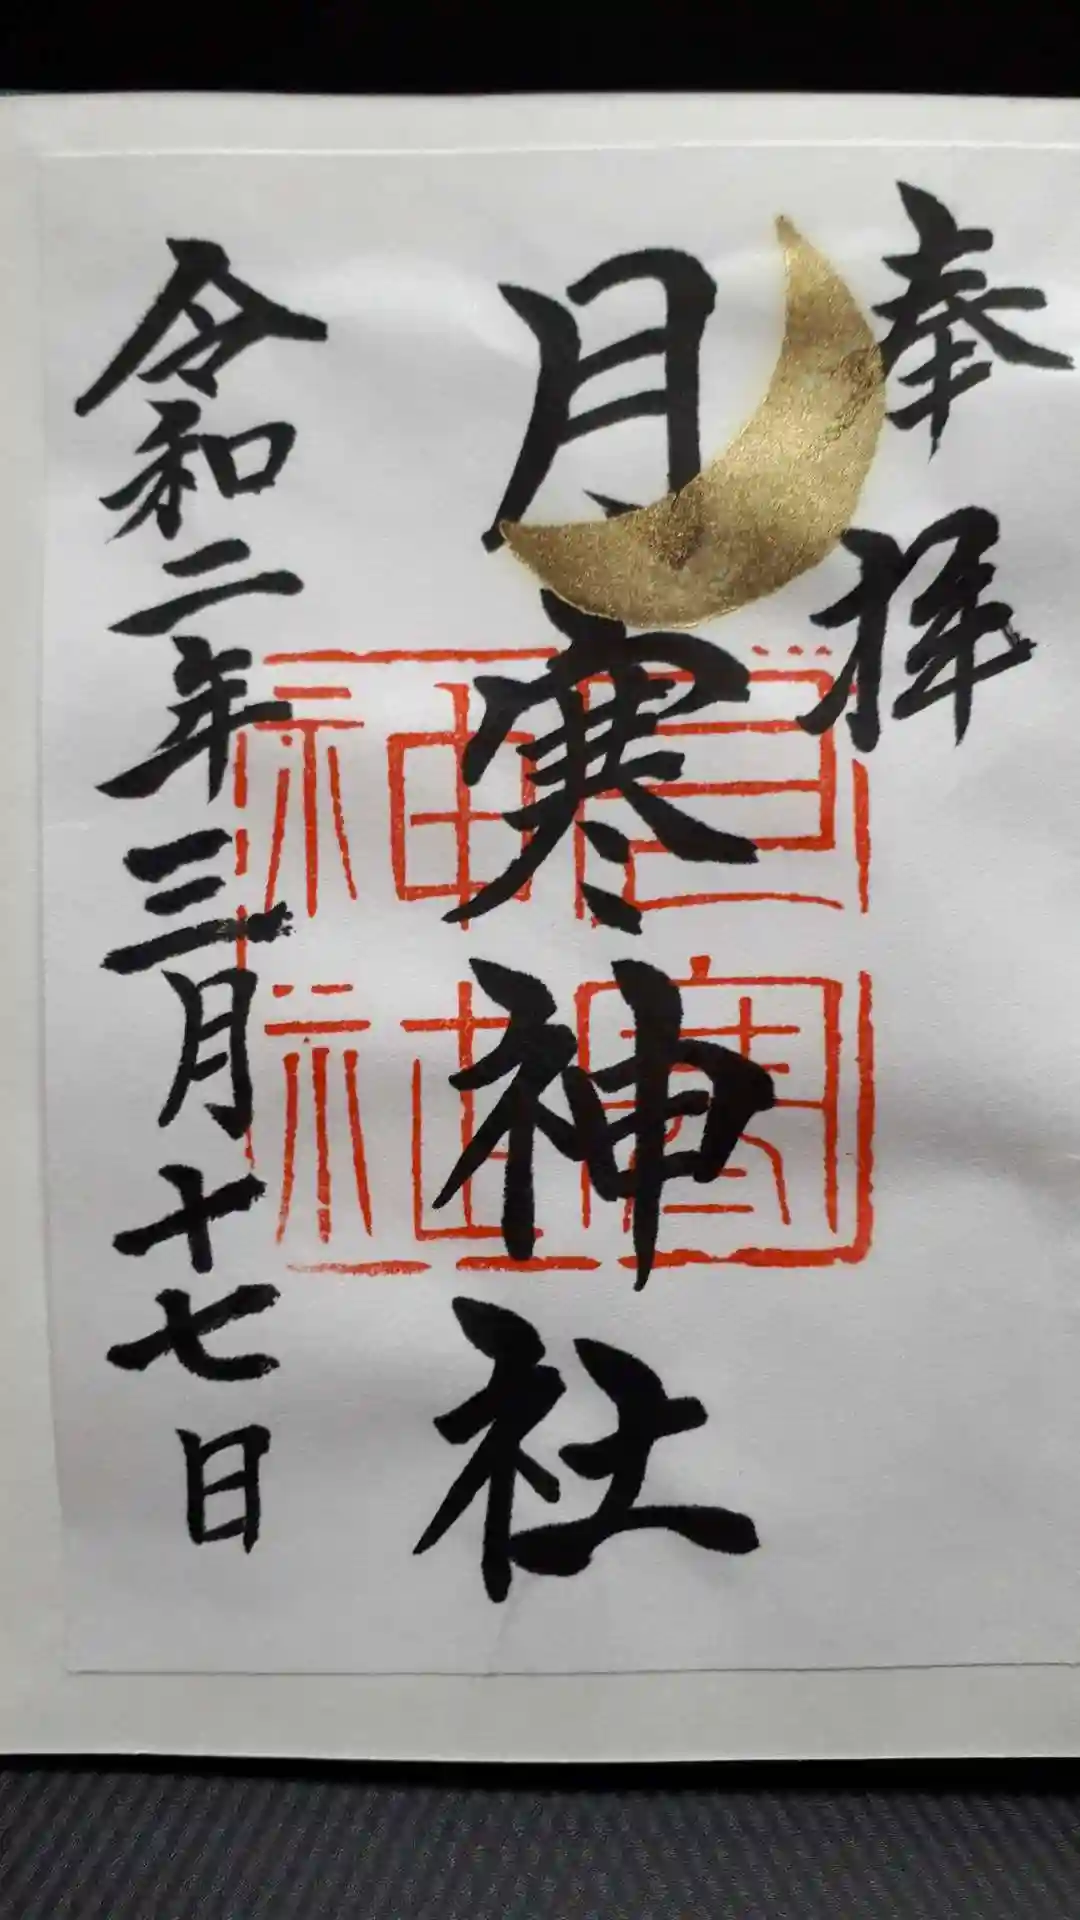 奉拝
月寒神社
令和二年三月十七日
月寒
神社